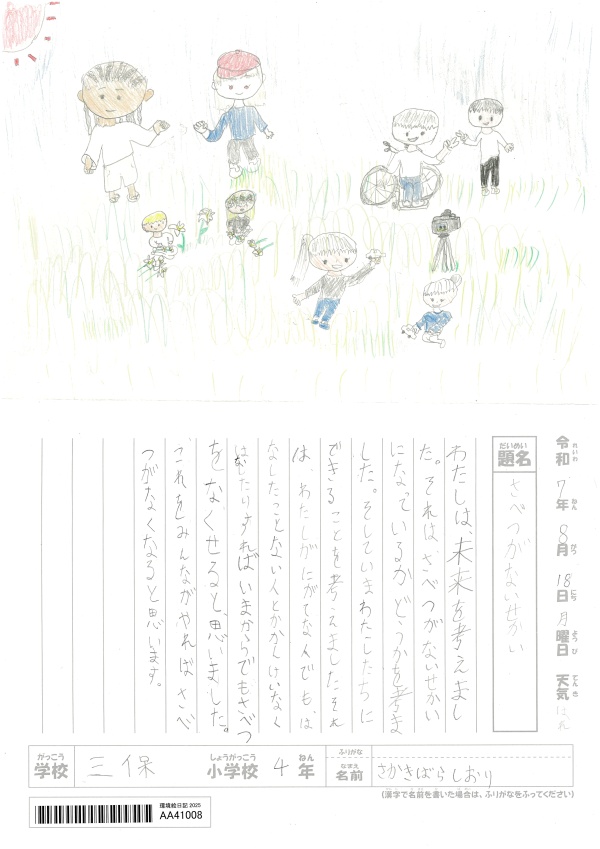 令和 れいわ 7年 ねん 8月 がつ 18日 にち 月曜日 ようび 天気 てんき はれ
題名 だいめい さべつがないせかい
わたしは、未来を考えまし
た。それは、さべつがないせかい
になっているかどうかを考えま
した。そしていまわたしたちに
できることを考えましたそれ
は、わたしがにがてな人でも、は
なしたことない人とかかんけいなく
はなしたりすればいまからでもさべつ
をなくせると、思いました。
これをみんながやれば さべ
つがなくなると思います。
学校 がっこう 三保 小学校 しょうがっこう 4年 ねん
ふりがな
名前 なまえ さかきばらしおり
(漢字で名前を書いた場合は、ふりがなをふってください)
環境絵日記 2025
AA41008